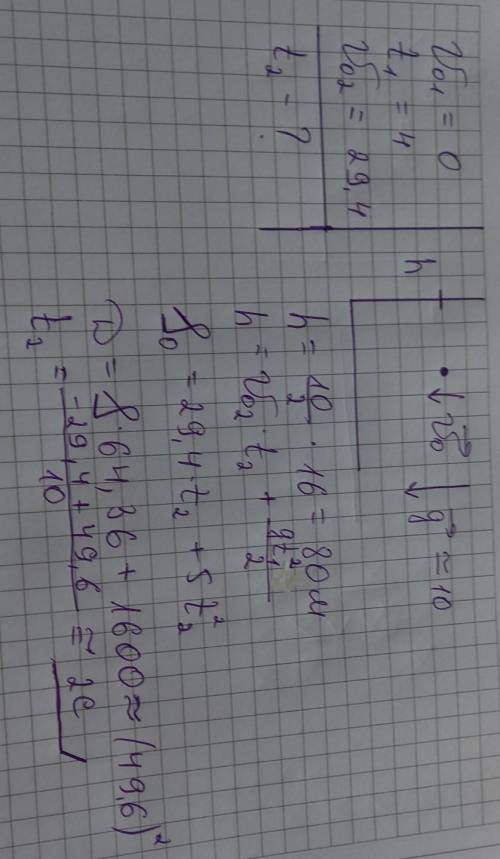 v₀₁ = 0
t₁ = 4
v₀₂ = 29,4
t₂ - ?
h
↓ v⃗₀ ↓ g⃗ = 10
h = 10/2 · 16 = 80 м
h = v₀₂ · t₂ + gt²/2
80 = 29,4 · t₂ + 5t₂²
D = 864,36 + 1600 ≈ (49,6)²
t₂ = (-29,4 + 49,6)/10 ≈ 2с